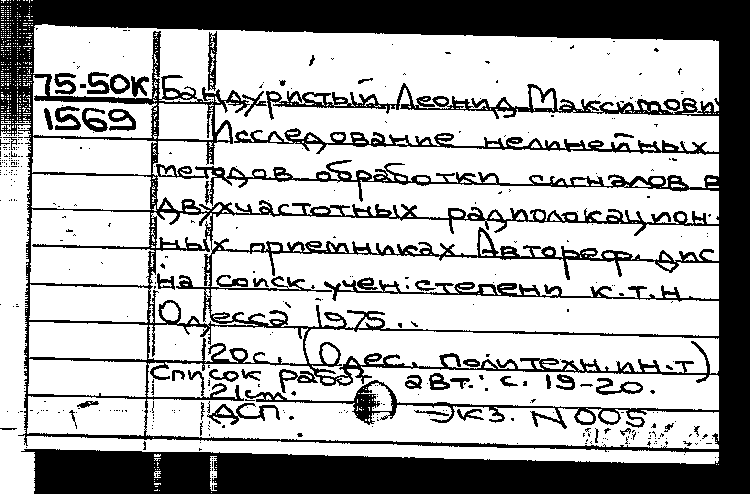 75-50К Бандуристый, Леонид Максимови
1569 Исследование нелинейных
методов обработки сигналов в
двухчастотных радиолокацион-
ных приемниках. Автореф. дис
на соиск. учен. степени к.т.н.
Одесса, 1975.
20с. (Одес. политехн. ин-т)
Список работ авт.: с. 19-20.
21см.
ДСП. Экз. N 005